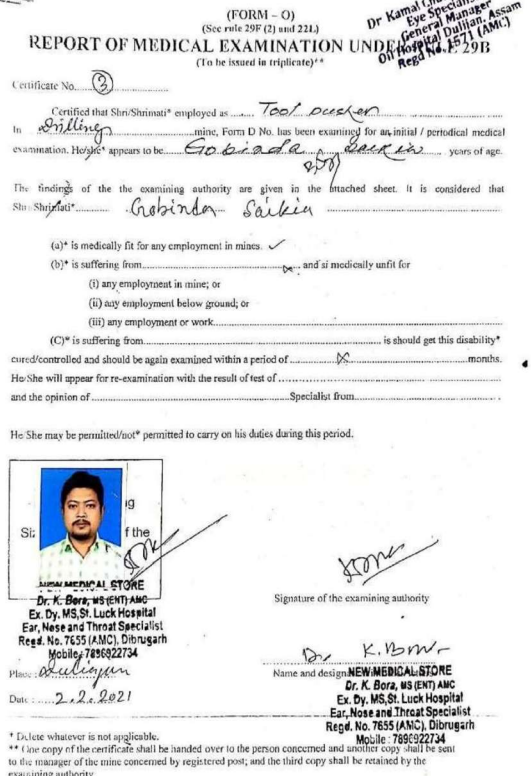 (FORM – O)
(See rule 29F (2) and 221.)
REPORT OF MEDICAL EXAMINATION UNDER RULE 29B
(To be issued in triplicate)**
Dr Kamal
Eye Specialist
General Manager
Oil Hospital Duliajan, Assam
Regd No. 1571 (AMC)
Certificate No. 3
Certified that Shri/Shrimati* employed as ...... Tool pusher
In Drilling ......mine, Form D No. has been examined for an initial / periodical medical
examination. He/she* appears to be...... Gobinda Saikia ...... years of age.
The findings of the the examining authority are given in the attached sheet. It is considered that
Shri/Shrimati*............ Gobinda Saikia ............
(a)* is medically fit for any employment in mines. ✓
(b)* is suffering from............ and si medically unfit for
(i) any employment in mine; or
(ii) any employment below ground; or
(iii) any employment or work............
(C)* is suffering from............ is should get this disability*
cured/controlled and should be again examined within a period of ............months.
He/She will appear for re-examination with the result of test of ............
and the opinion of ............Specialist from............
He/She may be permitted/not* permitted to carry on his duties during this period.
ng
Si f the
NEW MEDICAL STORE
Dr. K. Bora, MS (ENT) AMC
Ex. Dy. MS,St. Luck Hospital
Ear, Nose and Throat Specialist
Regd. No. 7655 (AMC), Dibrugarh
Mobile: 7896922734
Place : Duliajan
Date : ..... 2.2.2021
Signature of the examining authority
Dr. K. Bora
Name and design
NEW MEDICAL STORE
Dr. K. Bora, MS (ENT) AMC
Ex. Dy. MS,St. Luck Hospital
Ear, Nose and Throat Specialist
Regd. No. 7655 (AMC), Dibrugarh
Mobile : 7896922734
* Delete whatever is not applicable.
** One copy of the certificate shall be handed over to the person concerned and another copy shall be sent
to the manager of the mine concerned by registered post; and the third copy shall be retained by the
examining authority